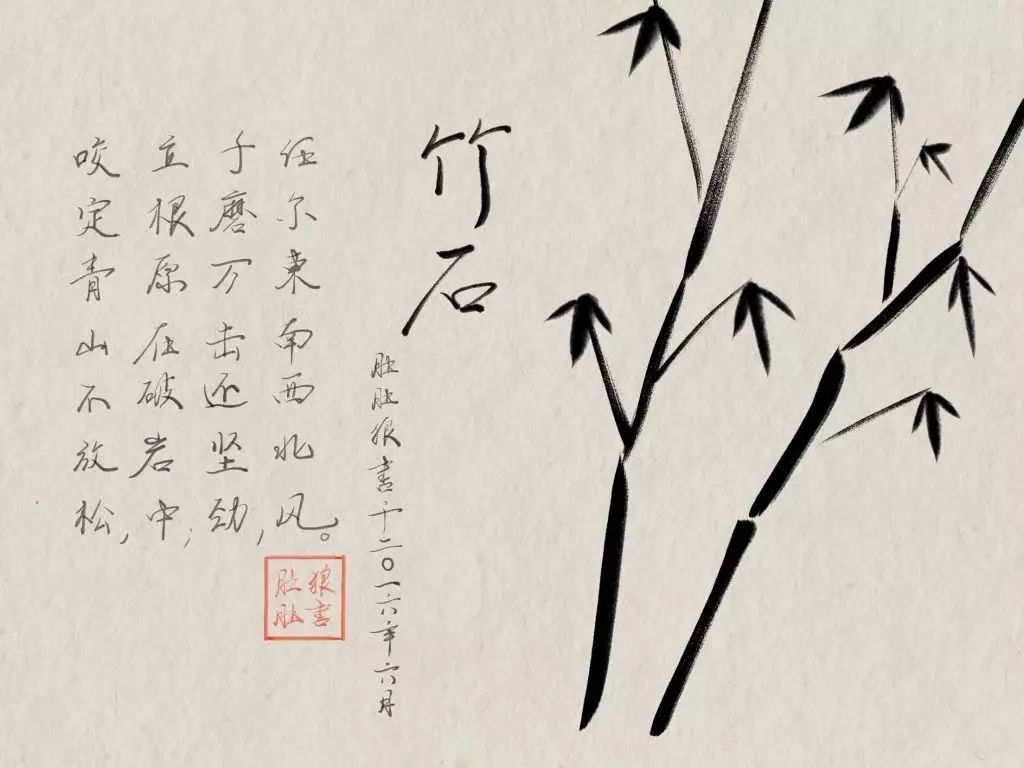 竹石
咬定青山不放松,
立根原在破岩中;
千磨万击还坚劲,
任尔东南西北风。
肚肚狼書于二〇一六年六月
肚肚
狼書